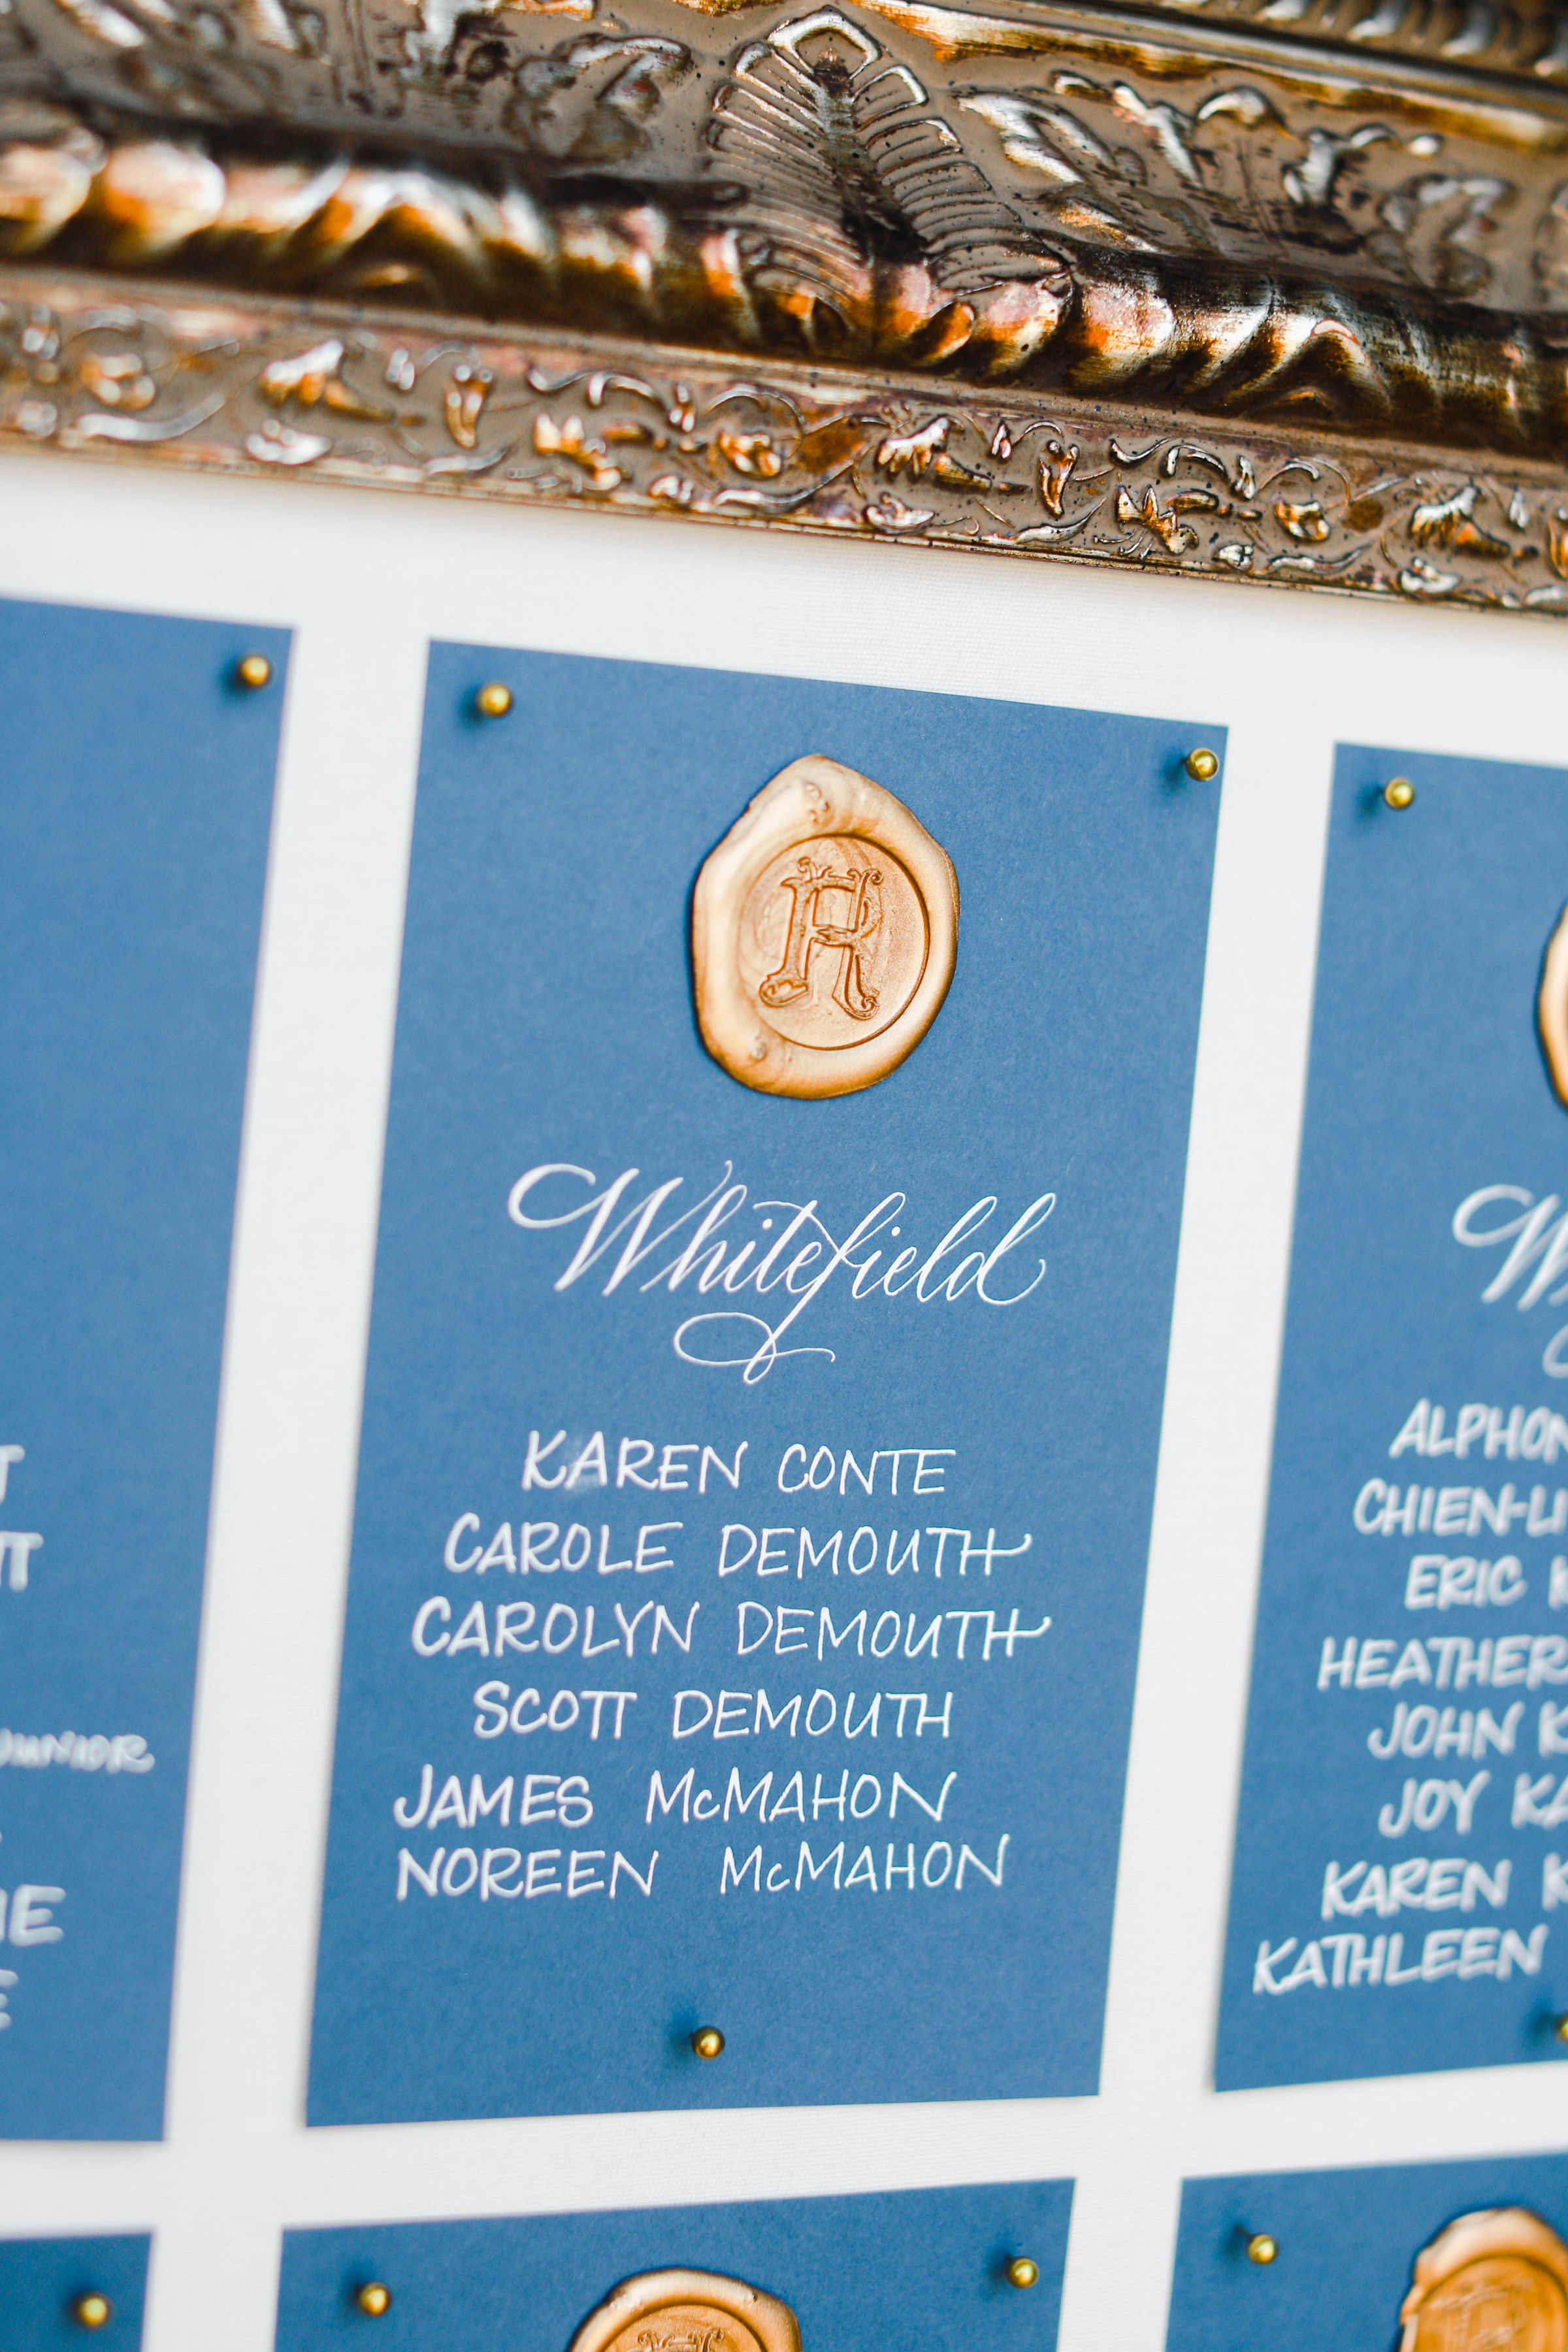 R
Whitefield
KAREN CONTE
CAROLE DEMOUTH
CAROLYN DEMOUTH
SCOTT DEMOUTH
JAMES McMAHON
NOREEN McMAHON
JUNIOR
ERIC
HEATHER
JOHN
JOY
KAREN
KATHLEEN